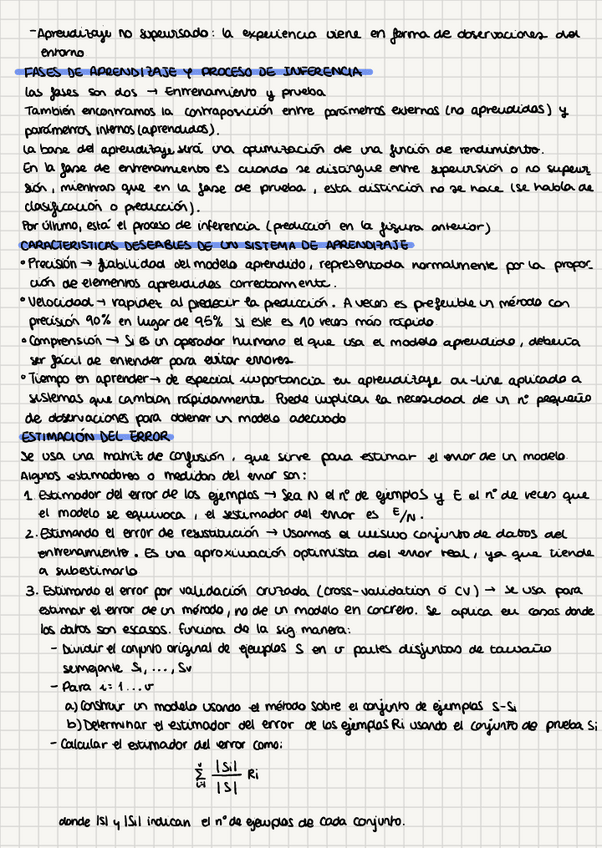 -Aprendizaje no supervisado: la experiencia viene en forma de observaciones del
entorno
FASES DE APRENDIZAJE Y PROCESO DE INFERENCIA
Las fases son dos → Entrenamiento y prueba
También encontramos la contraposición entre parámetros externos (no aprendidos) y
parámetros internos (aprendidos).
La base del aprendizaje será una optimización de una función de rendimiento.
En la fase de entrenamiento es cuando se distingue entre supervisión o no supervi
sión, mientras que en la fase de prueba, esta distinción no se hace (se habla de
clasificación o predicción).
Por último, está el proceso de inferencia (predicción en la figura anterior)
CARACTERISTICAS DESEABLES DE UN SISTEMA DE APRENDIZAJE
• Precisión → fiabilidad del modelo aprendido, representada normalmente por la propor
ción de elementos aprendidos correctamente.
• Velocidad → rapidez al predecir la predicción. A veces es preferible un método con
precisión 90% en lugar de 95% si este es 10 veces más rápido
• Comprensión → Si es un operador humano el que usa el modelo aprendido, debería
ser fácil de entender para evitar errores
• Tiempo en aprender → de especial importancia en aprendizaje on-line aplicado a
sistemas que cambian rápidamente. Puede implicar la necesidad de un nº pequeño
de observaciones para obtener un modelo adecuado
ESTIMACIÓN DEL ERROR
Se usa una matriz de confusión, que sirve para estimar el error de un modelo.
Algunos estimadores o medidas del error son:
1. Estimador del error de los ejemplos → Sea N el nº de ejemplos y E el nº de veces que
el modelo se equivoca, el sestimador del error es E/N.
2. Estimando el error de resustitución → Usamos el mismo conjunto de datos del
entrenamiento. Es una aproximación optimista del error real, ya que tiende
a subestimarlo
3. Estimando el error por validación cruzada (cross-validation ó CV) → Se usa para
estimar el error de un método, no de un modelo en concreto. Se aplica en casos donde
los datos son escasos. Funciona de la sig manera:
- Dividir el conjunto original de ejemplos S en v partes disjuntas de tamaño
semejante S₁, ..., Sv
- Para i = 1 ... v
a) Construir un modelo usando el método sobre el conjunto de ejemplos S-Si
b) Determinar el estimador del error de los ejemplos Ri usando el conjunto de prueba Si
- Calcular el estimador del error como:
v Σ i=1 |Si| / |S| Ri
donde |S| y |Si| indican el nº de ejemplos de cada conjunto.